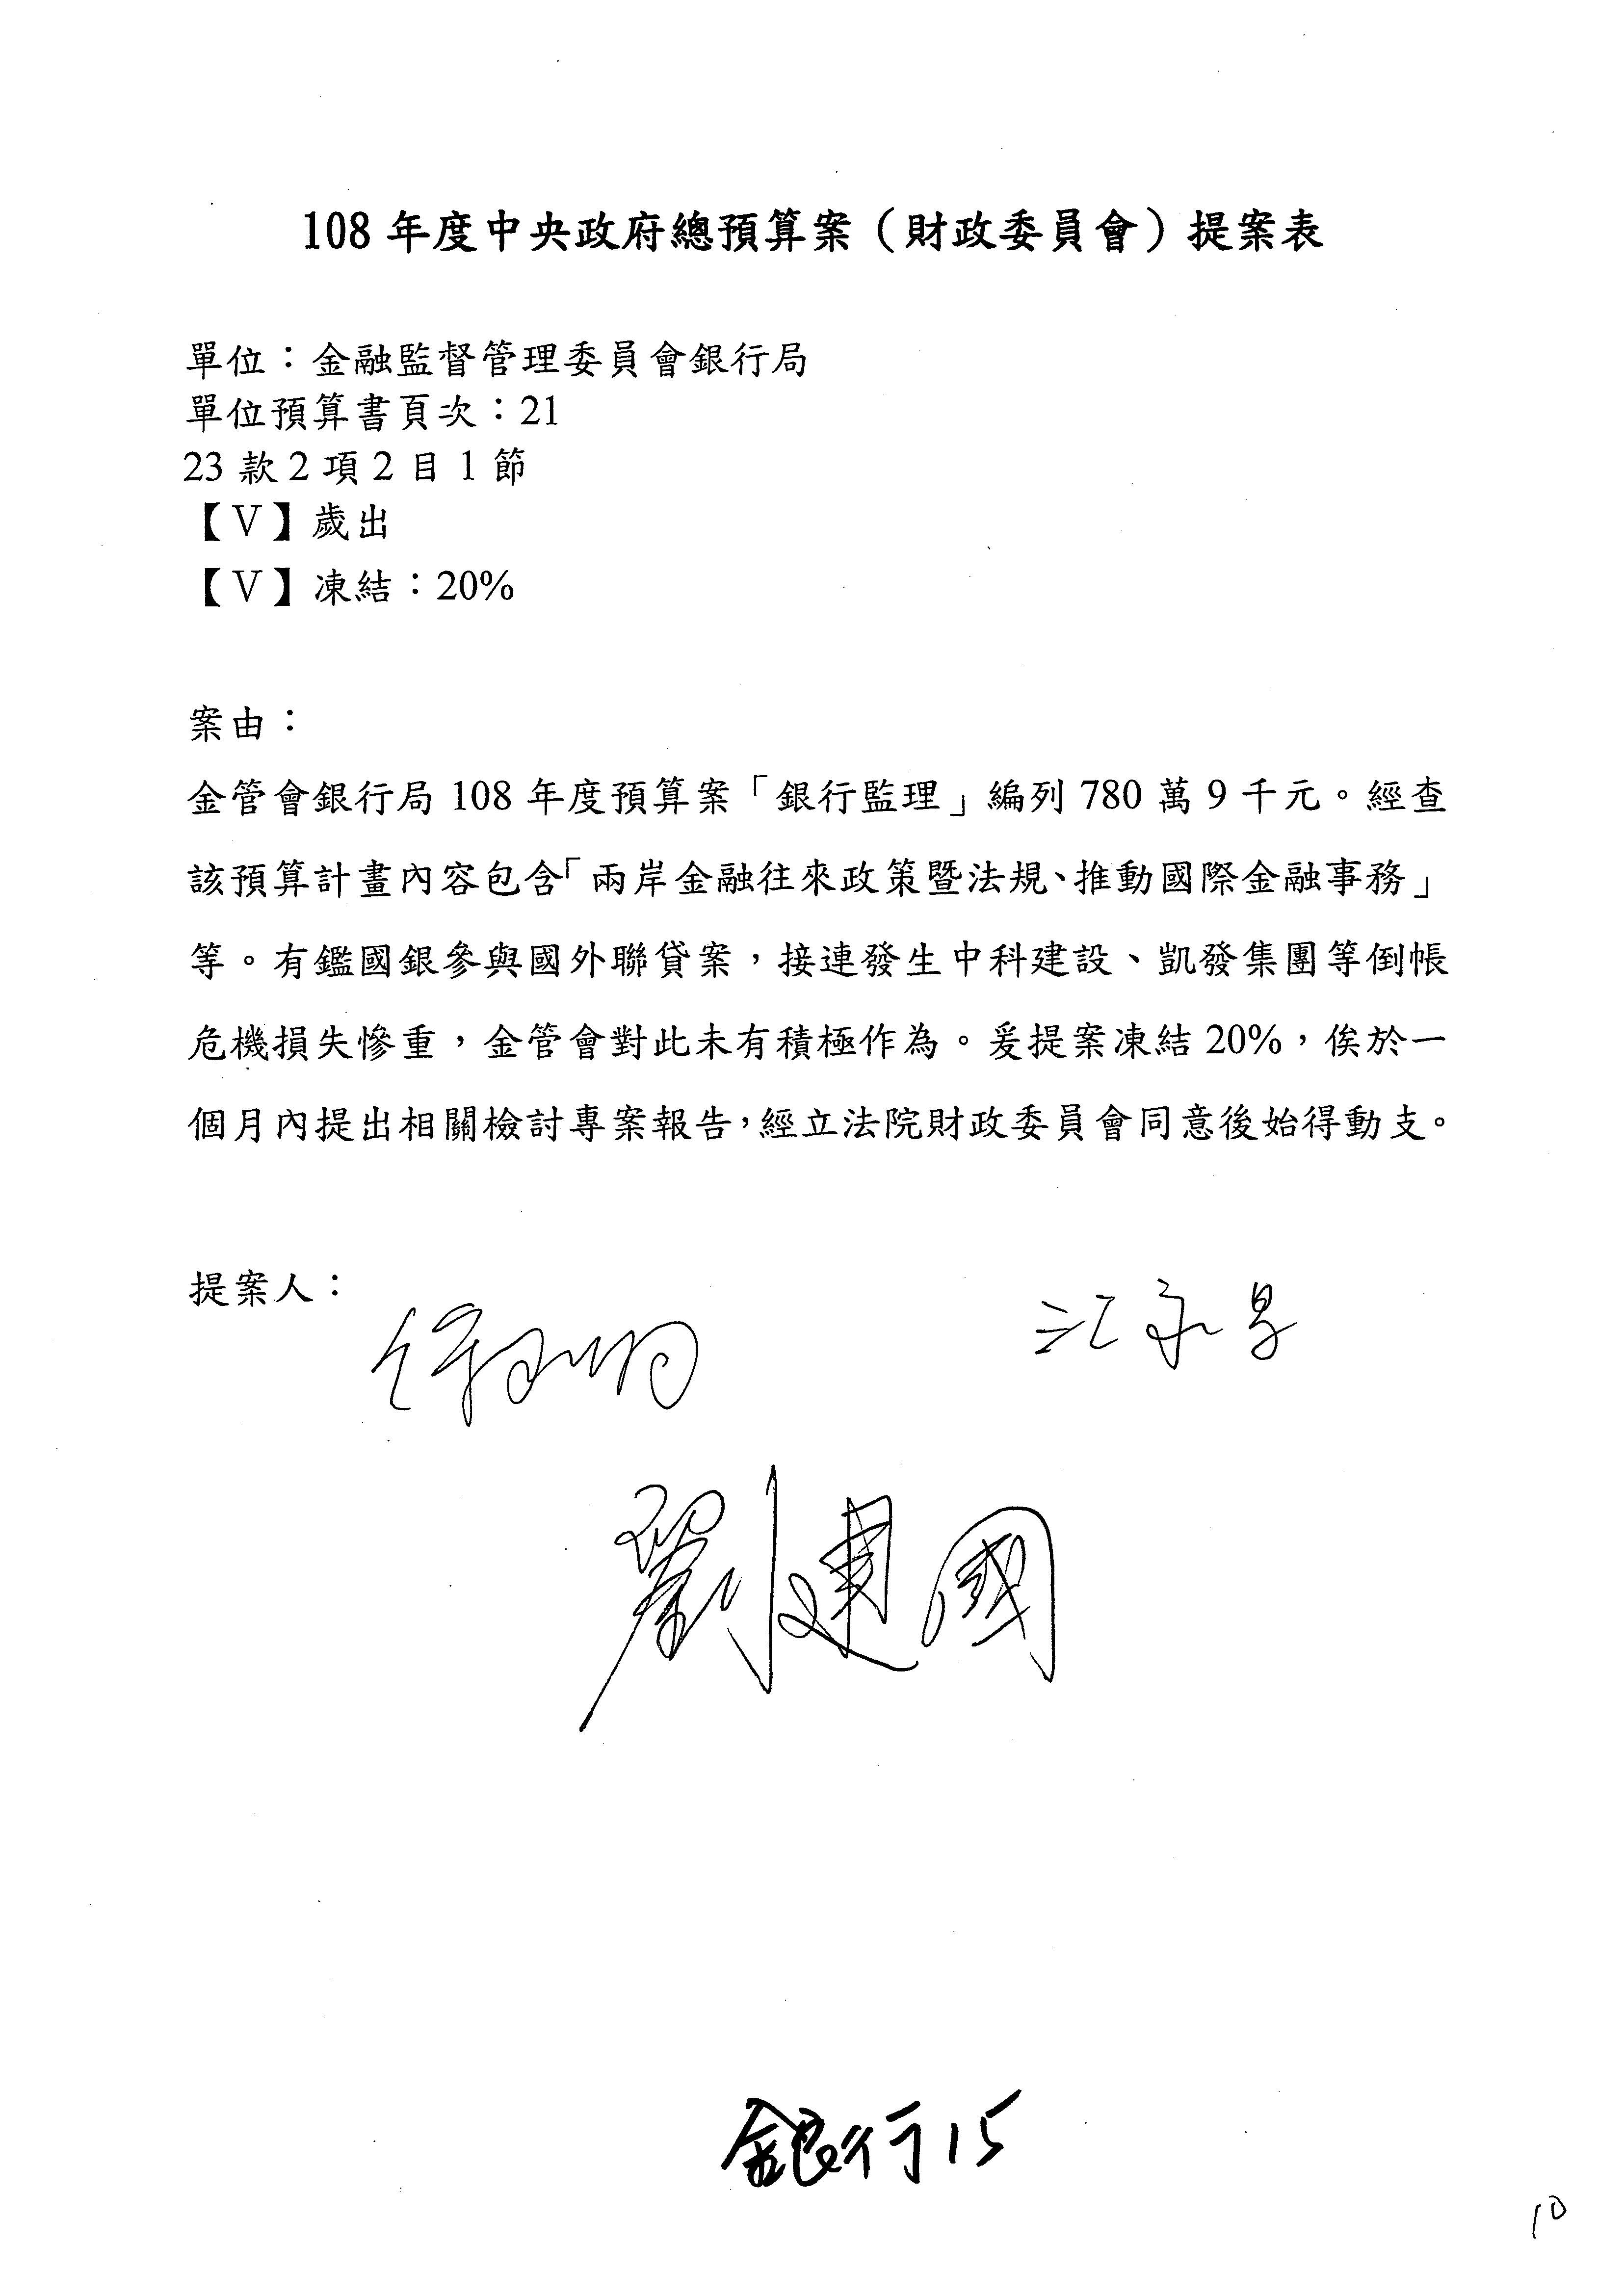 108 年度中央政府總預算案（財政委員會）提案表
單位：金融監督管理委員會銀行局
單位預算書頁次：21
23 款 2 項 2 目 1 節
【V】歲出
【V】凍結：20%
案由：
金管會銀行局 108 年度預算案「銀行監理」編列 780 萬 9 千元。經查
該預算計畫內容包含「兩岸金融往來政策暨法規、推動國際金融事務」
等。有鑑國銀參與國外聯貸案，接連發生中科建設、凱發集團等倒帳
危機損失慘重，金管會對此未有積極作為。爰提案凍結 20%，俟於一
個月內提出相關檢討專案報告，經立法院財政委員會同意後始得動支。
提案人：
江永昌
劉建國
銀行15
10